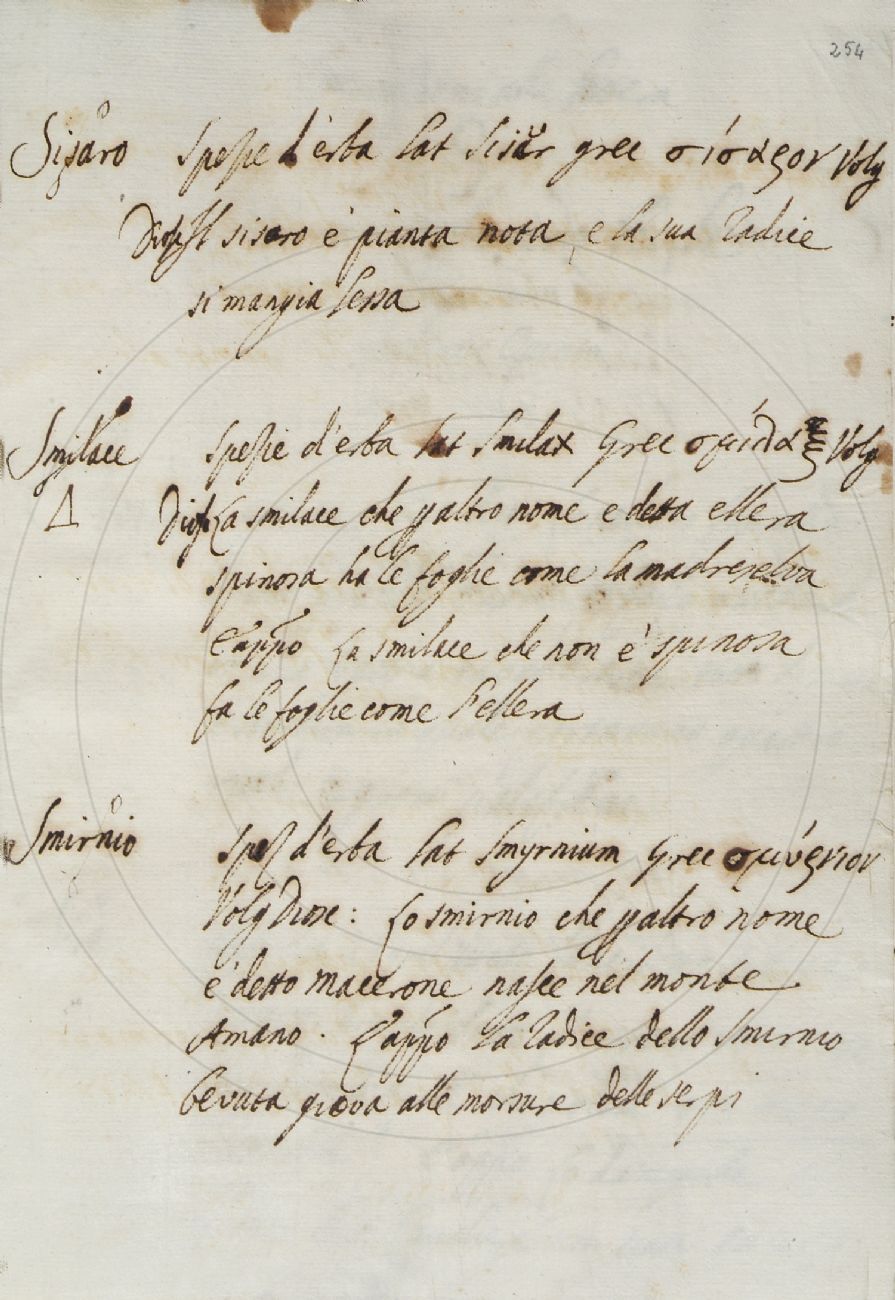 254
Sisaro spesie d'erba lat sisar grec σίσαρον Volg
Diosc Il sisaro è pianta nota, e la sua radice
si mangia lessa
Smilace spezie d'erba lat Smilax Grec σμίλαξ Volg
Δ Diosc La smilace che p altro nome e detta ellera
spinosa ha le foglie come la madreselva
E appo La smilace che non è spinosa
fa le foglie come l'ellera
Smirnio spez d'erba lat Smyrnium Grec σμύρνιον
Volg Diosc: Lo smirnio che p altro nome
è detto macerone nasce nel monte
Amano. E appo La radice dello Smirnio
bevuta giova alle morsure delle serpi